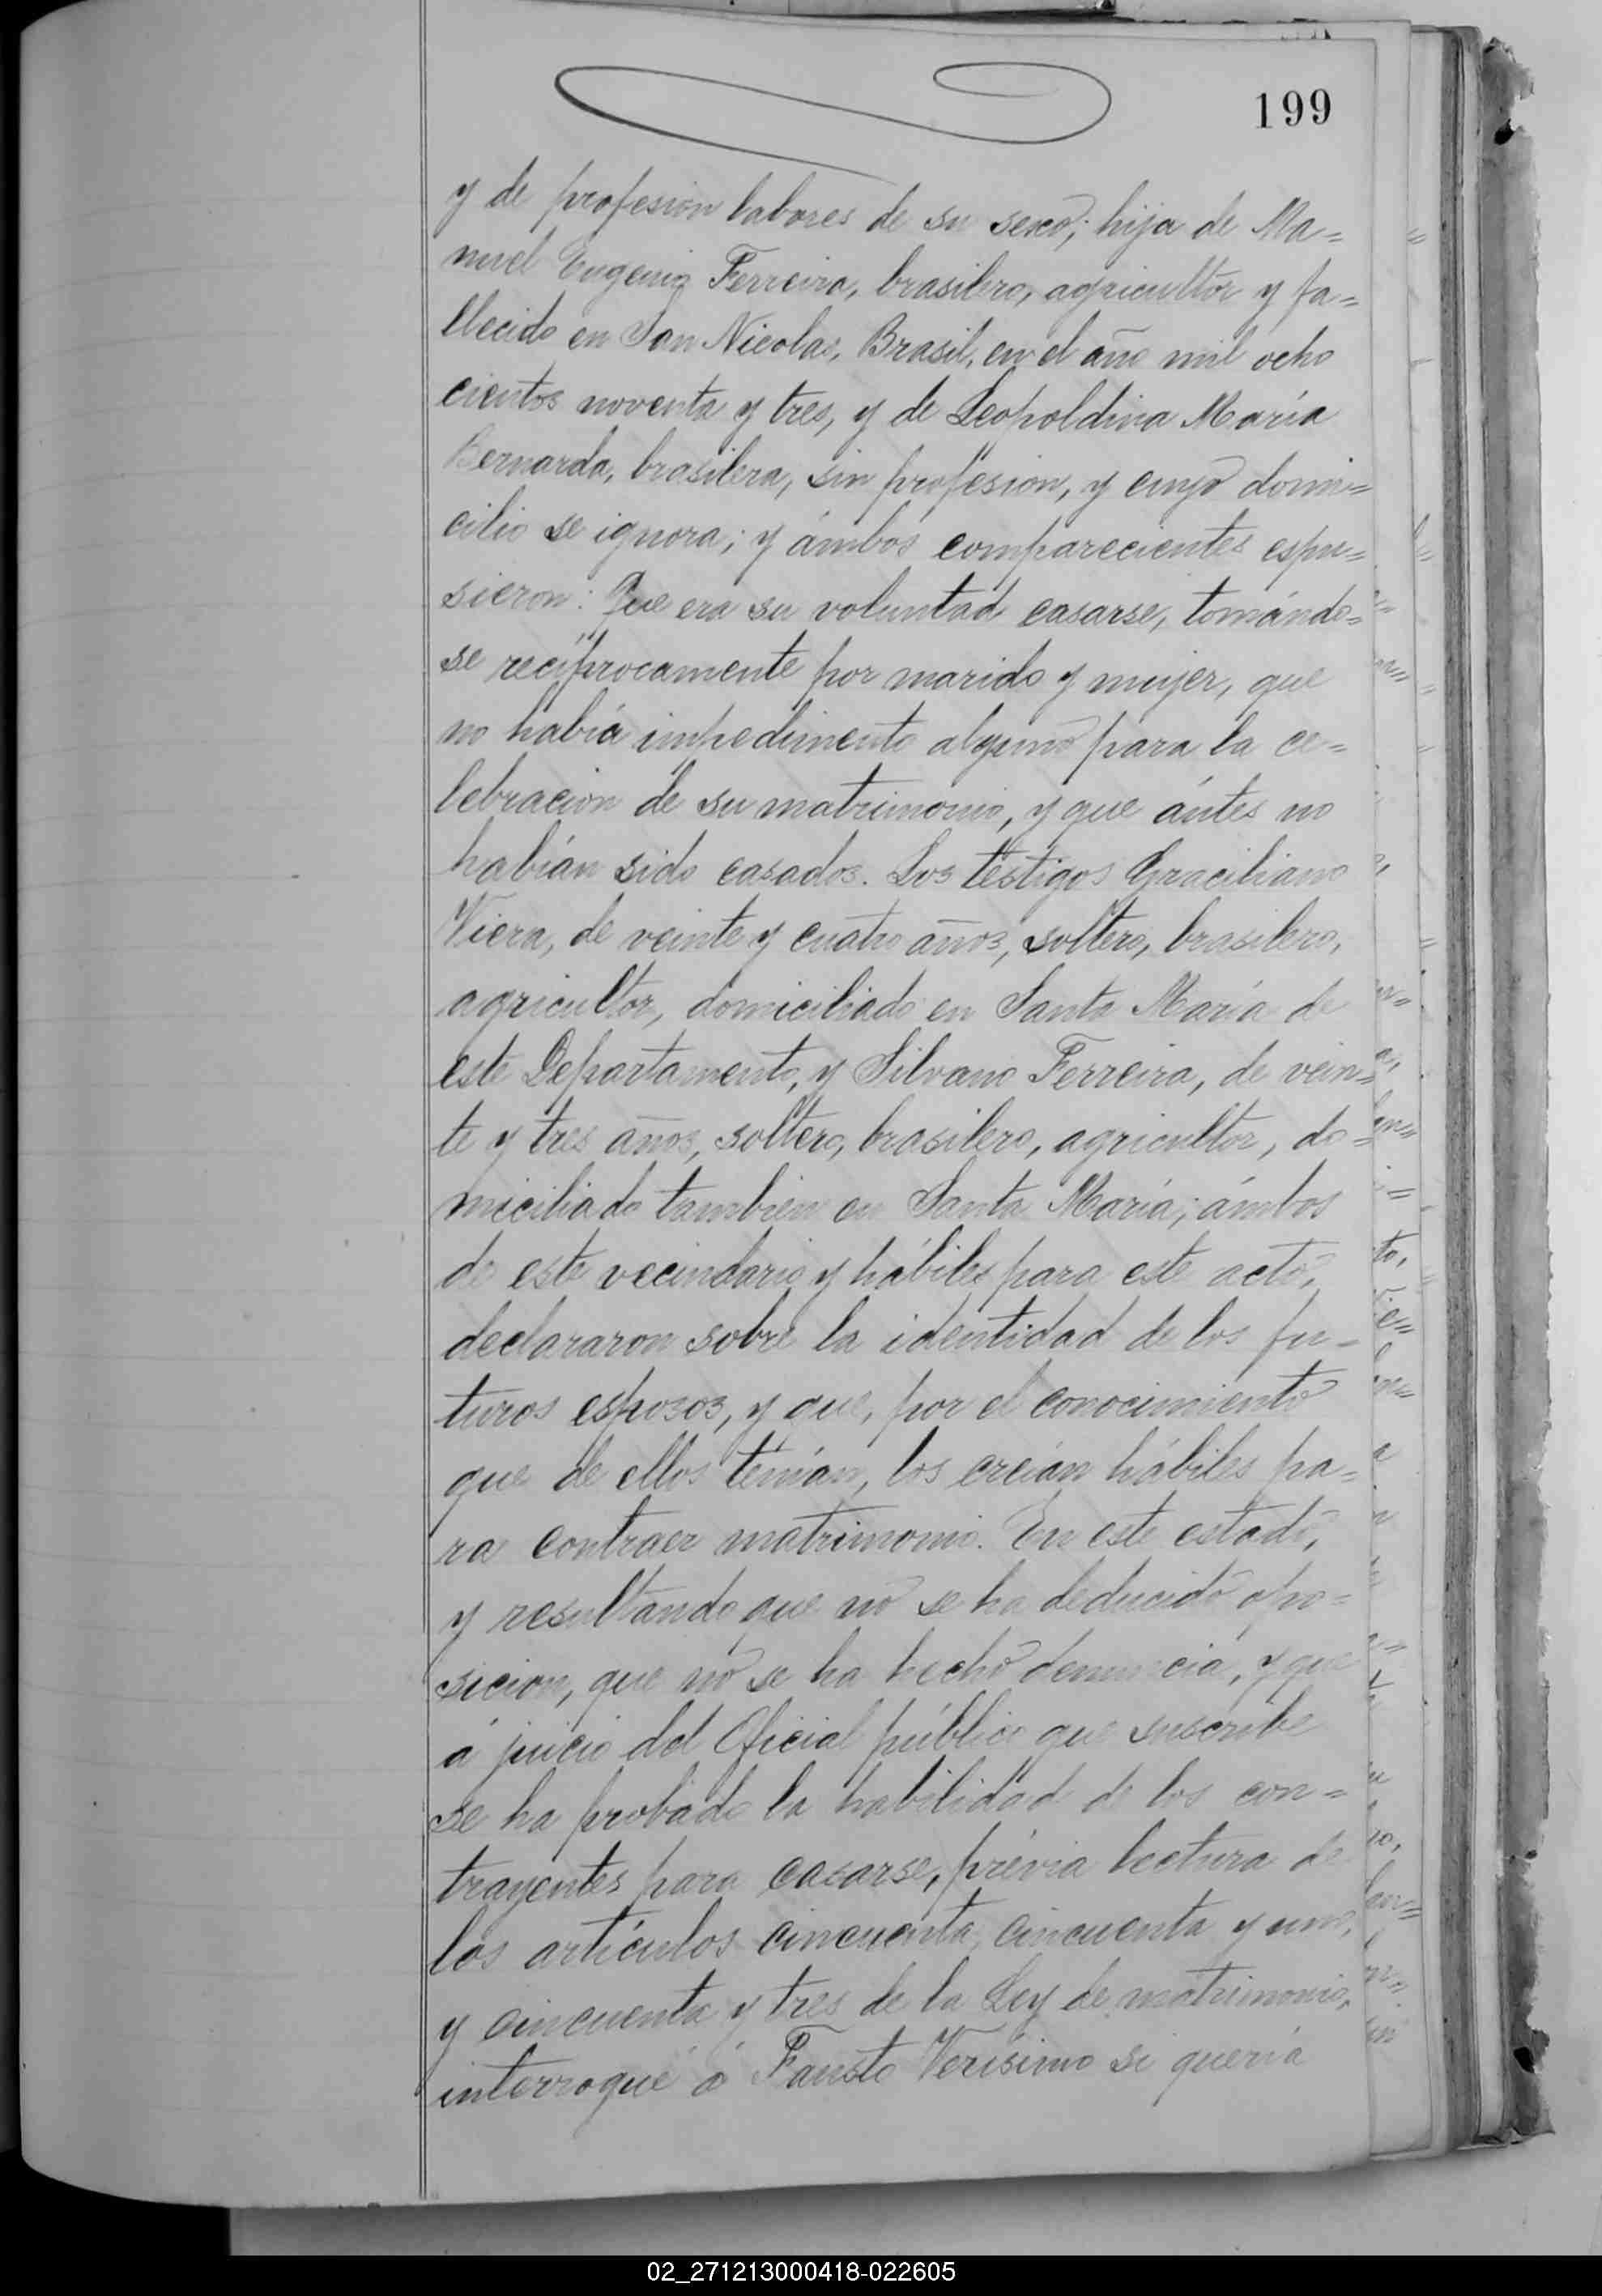 199
y de profesion labores de su sexo; hija de Ma=
nuel Eugenio Ferreira, brasilero, agricultor y fa=
llecido en San Nicolas, Brasil, en el año mil ocho
cientos noventa y tres, y de Leopoldina María
Bernarda, brasilera, sin profesion, y cuyo domi=
cilio se ignora; y ámbos comparecientes espu=
sieron: Que era su voluntad casarse, tomándo=
se recíprocamente por marido y mujer, que
no había impedimento alguno para la ce=
lebracion de su matrimonio, y que ántes no
habían sido casados. Los testigos Graciliano
Viera, de veinte y cuatro años, soltero, brasilero,
agricultor, domiciliado en Santa María de
este Departamento, y Silvano Ferreira, de vein=
te y tres años, soltero, brasilero, agricultor, do=
miciliado tambien en Santa María; ámbos
de este vecindario y hábiles para este acto,
declararon sobre la identidad de los fu-
turos esposos, y que, por el conocimiento
que de ellos tenían, los creían hábiles pa=
ra contraer matrimonio. En este estado,
y resultando que no se ha deducido opo=
sicion, que no se ha hecho denuncia, y que
á juicio del Oficial público que suscribe
se ha probado la habilidad de los con=
trayentes para casarse, prévia lectura de
los artículos cincuenta, cincuenta y uno,
y cincuenta y tres de la Ley de matrimonio,
interrogué á Fausto Verísimo si quería
02_271213000418-022605